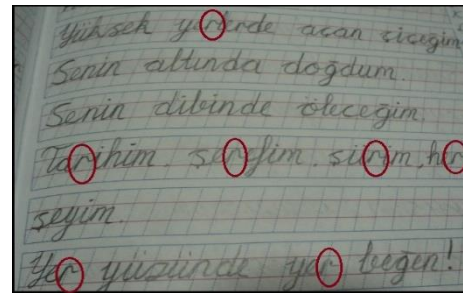 Yüksek yerlerde açan çiçeğim
Senin altında doğdum.
Senin dibinde öleceğim
Tarihim, şerefim, şiirim, her
şeyim.
Yer yüzünde yer beğen!